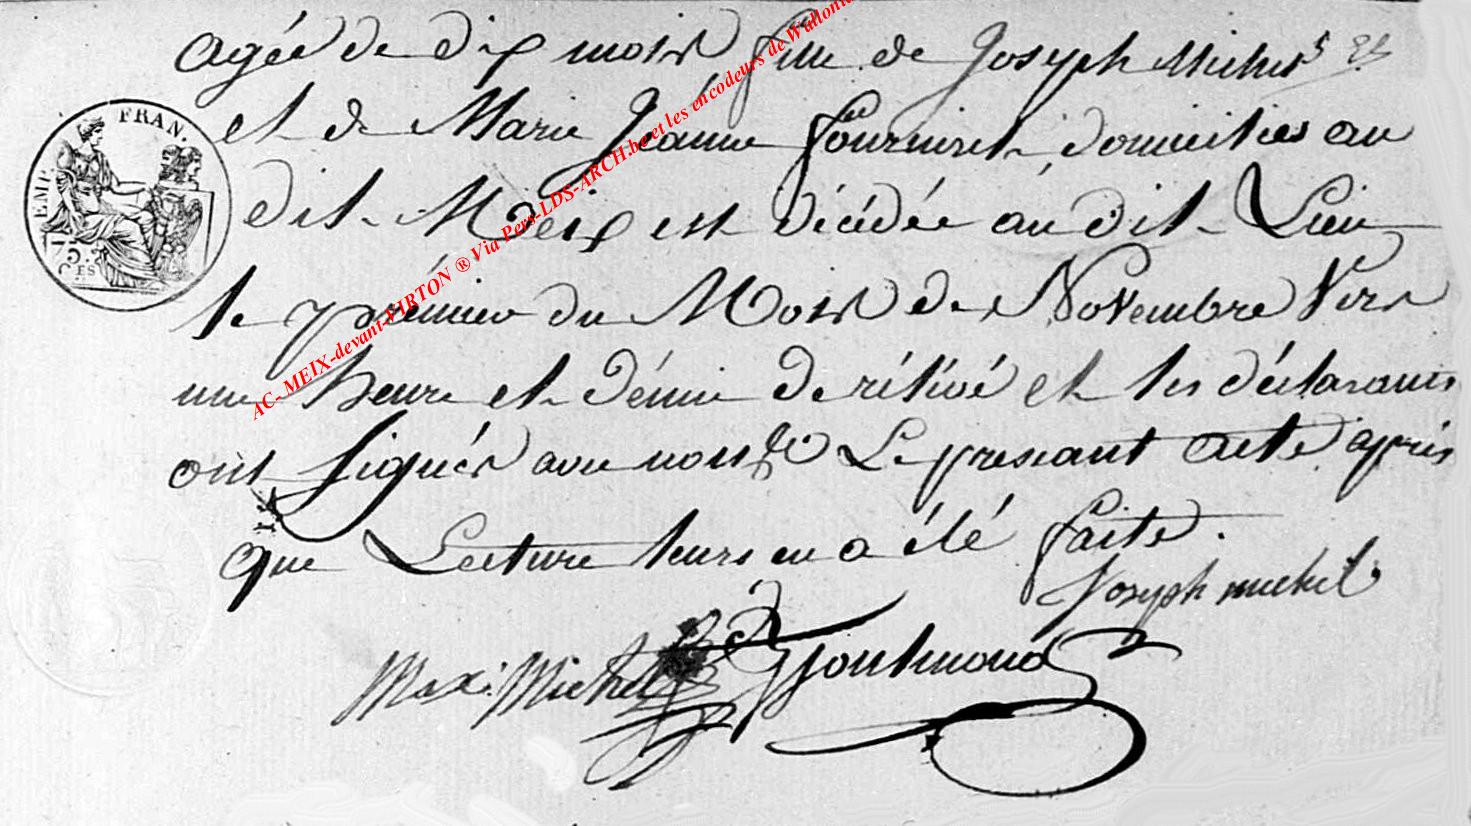 agée de dix mois fille de Joseph Michel
et de Marie Jeanne fourniret domiciliés au
dit Meix est décédée audit Lieu
le prémier du Mois de Novembre Vers
une heure et démie de rélévé et les déclarants
ont signés avec nous le present acte après
que Lecture leurs en a été faite.
Joseph michel
Max. Michel
EMP. FRAN.
75. CES
AC- MEIX-devant-VIRTON ® Via Pers-LDS-ARCH.be et les encodeurs de Wallonie